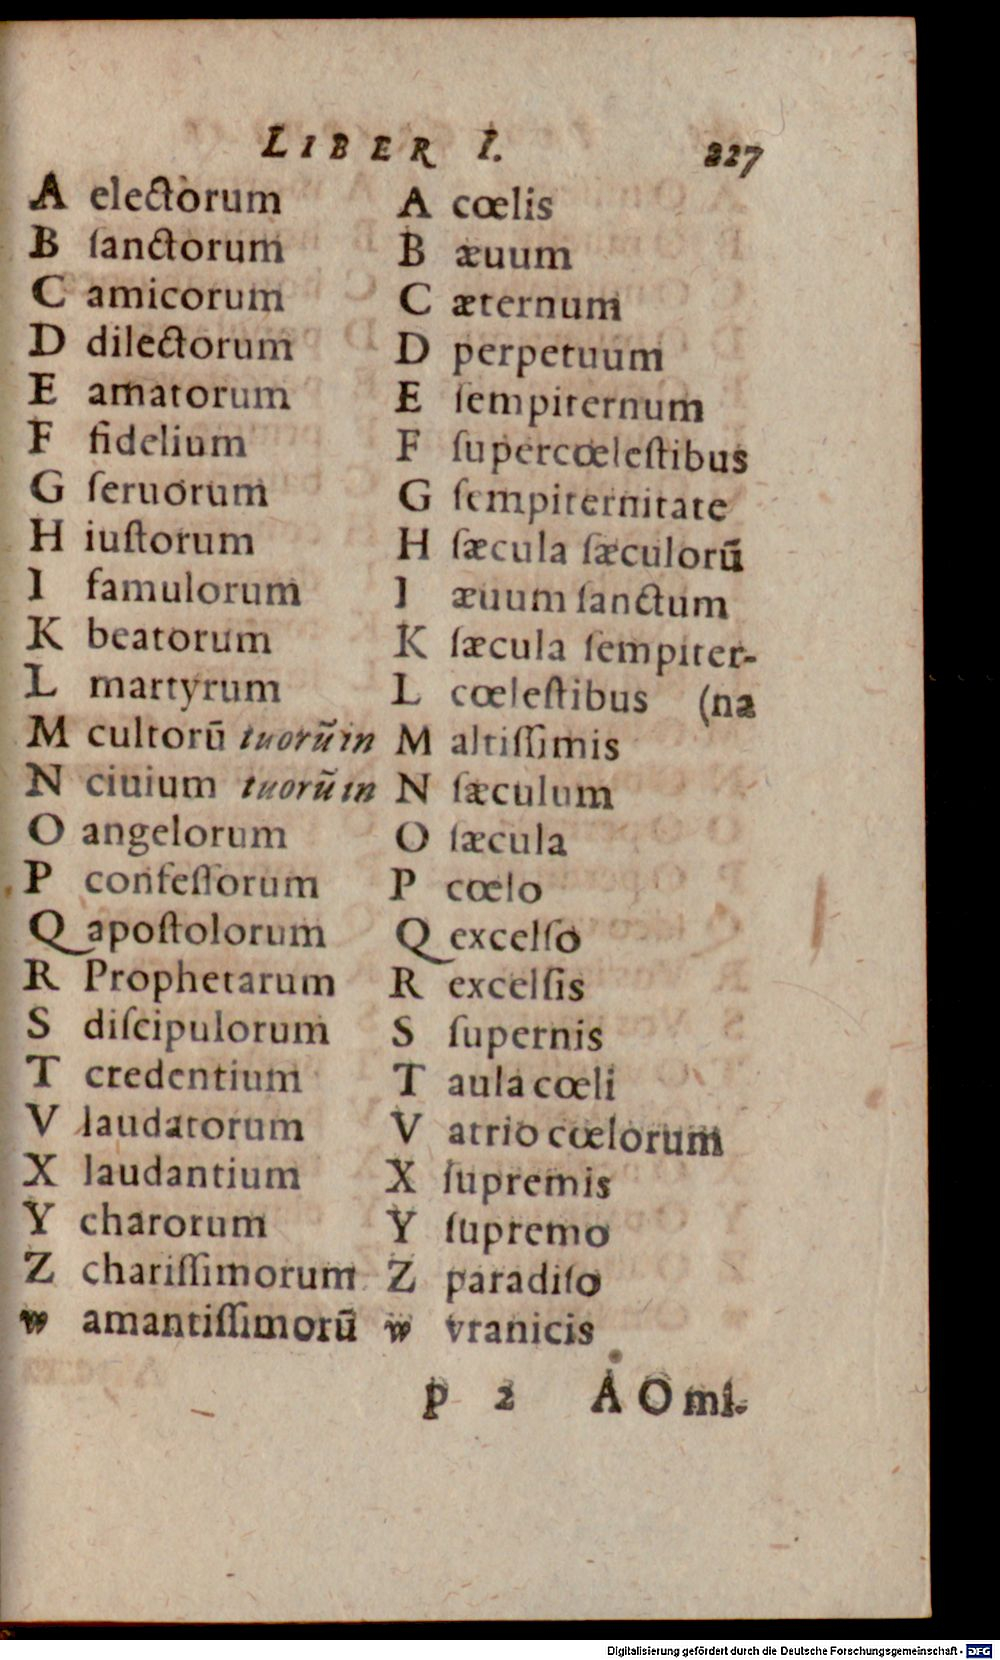 LIBER I. 227
A electorum A cœlis
B ſanctorum B æuum
C amicorum C æternum
D dilectorum D perpetuum
E amatorum E ſempiternum
F fidelium F ſupercœleſtibus
G ſeruorum G ſempiternitate
H iuſtorum H ſæcula ſæculorū
I famulorum I æuum ſanctum
K beatorum K ſæcula ſempiter-
L martyrum L cœleſtibus (na
M cultorū tuorū in M altiſſimis
N ciuium tuorū in N ſæculum
O angelorum O ſæcula
P confeſſorum P cœlo
Q apoſtolorum Q excelſo
R Prophetarum R excelſis
S diſcipulorum S ſupernis
T credentium T aula cœli
V laudatorum V atrio cœlorum
X laudantium X ſupremis
Y charorum Y ſupremo
Z chariſſimorum Z paradiſo
w amantiſſimorū w vranicis
P 2 A Omi-
Digitalisierung gefördert durch die Deutsche Forschungsgemeinschaft - DFG